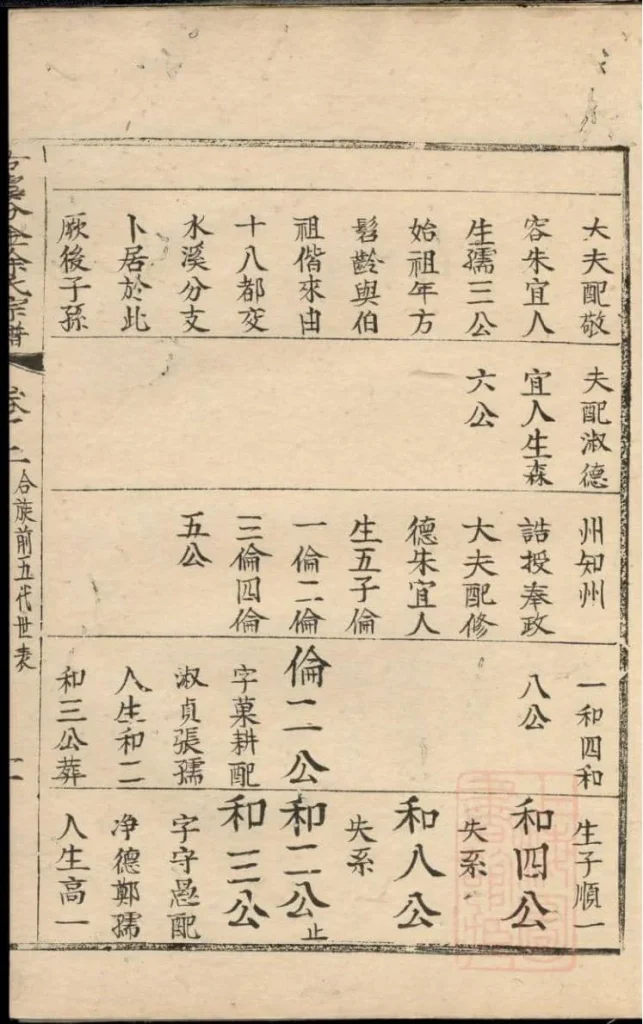 大夫配敬
容朱宜人
生孺三公
始祖年方
髫齡與伯
祖偕來由
十八都交
水溪分支
卜居於此
厥後子孫
夫配淑德
宜人生森
六公
州知州
誥授奉政
大夫配修
德朱宜人
生五子倫
一倫二倫
三倫四倫
五公
一和四和
八公
倫二公
字菓耕配
淑貞張孺
人生和二
和三公葬
生子順一
和四公
失系
和八公
失系
和二公止
和三公
字守愚配
净德鄭孺
人生高一
金徐氏宗譜
卷
合族前五代世表